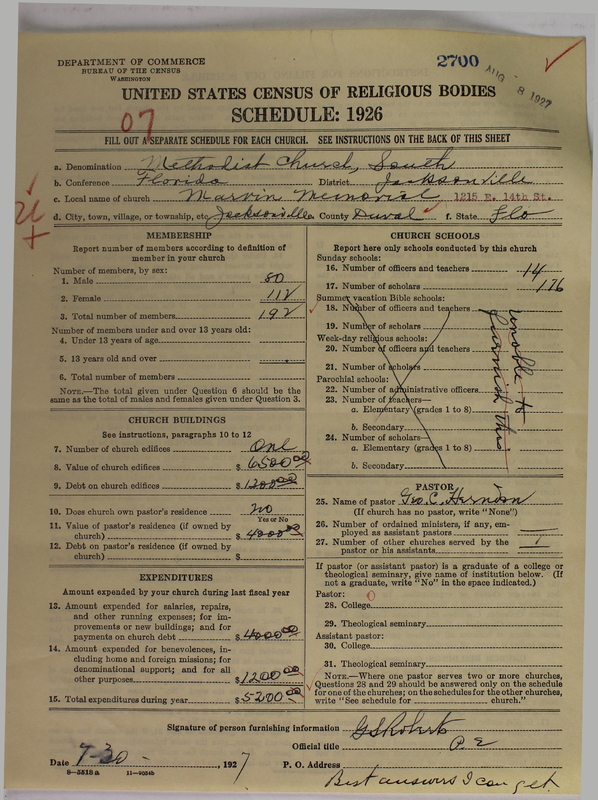 2700
AUG 8 1927
DEPARTMENT OF COMMERCE
BUREAU OF THE CENSUS
WASHINGTON
UNITED STATES CENSUS OF RELIGIOUS BODIES
SCHEDULE: 1926
07
FILL OUT A SEPARATE SCHEDULE FOR EACH CHURCH. SEE INSTRUCTIONS ON THE BACK OF THIS SHEET
a. Denomination Methodist Church, South
b. Conference Florida District Jacksonville
c. Local name of church Marvin Memorial, 1215 E. 14th St.
d. City, town, village, or township, etc Jacksonville County Duval f. State Flo
MEMBERSHIP
Report number of members according to definition of
member in your church
Number of members, by sex:
1. Male 80
2. Female 112
3. Total number of members 192
Number of members under and over 13 years old:
4. Under 13 years of age
5. 13 years old and over
6. Total number of members
NOTE.—The total given under Question 6 should be the
same as the total of males and females given under Question 3.
CHURCH BUILDINGS
See instructions, paragraphs 10 to 12
7. Number of church edifices One
8. Value of church edifices $ 6500.00
9. Debt on church edifices $ 1200.00
10. Does church own pastor's residence no
Yes or No
11. Value of pastor's residence (if owned by
church) $ 4000.00
12. Debt on pastor's residence (if owned by
church) $
EXPENDITURES
Amount expended by your church during last fiscal year
13. Amount expended for salaries, repairs,
and other running expenses; for im-
provements or new buildings; and for
payments on church debt $ 4000.00
14. Amount expended for benevolences, in-
cluding home and foreign missions; for
denominational support; and for all
other purposes $ 1200.00
15. Total expenditures during year $ 5200.00
CHURCH SCHOOLS
Report here only schools conducted by this church
Sunday schools:
16. Number of officers and teachers 14
17. Number of scholars 176
Summer vacation Bible schools:
18. Number of officers and teachers
19. Number of scholars
Week-day religious schools:
20. Number of officers and teachers
21. Number of scholars
Parochial schools:
22. Number of administrative officers
23. Number of teachers—
a. Elementary (grades 1 to 8)
b. Secondary
24. Number of scholars—
a. Elementary (grades 1 to 8)
b. Secondary
unable to
furnish this
PASTOR
25. Name of pastor Geo. C. Herndon
(If church has no pastor, write "None")
26. Number of ordained ministers, if any, em-
ployed as assistant pastors
27. Number of other churches served by the
pastor or his assistants 1
If pastor (or assistant pastor) is a graduate of a college or
theological seminary, give name of institution below. (If
not a graduate, write "No" in the space indicated.)
Pastor: 0
28. College
29. Theological seminary
Assistant pastor:
30. College
31. Theological seminary
NOTE.—Where one pastor serves two or more churches,
Questions 28 and 29 should be answered only on the schedule
for one of the churches; on the schedules for the other churches,
write "See schedule for church."
Signature of person furnishing information GS Roberts
Official title P E
Date 7-30- , 1927 P. O. Address
8—5518 a 11—9054b
Best answers I can get.